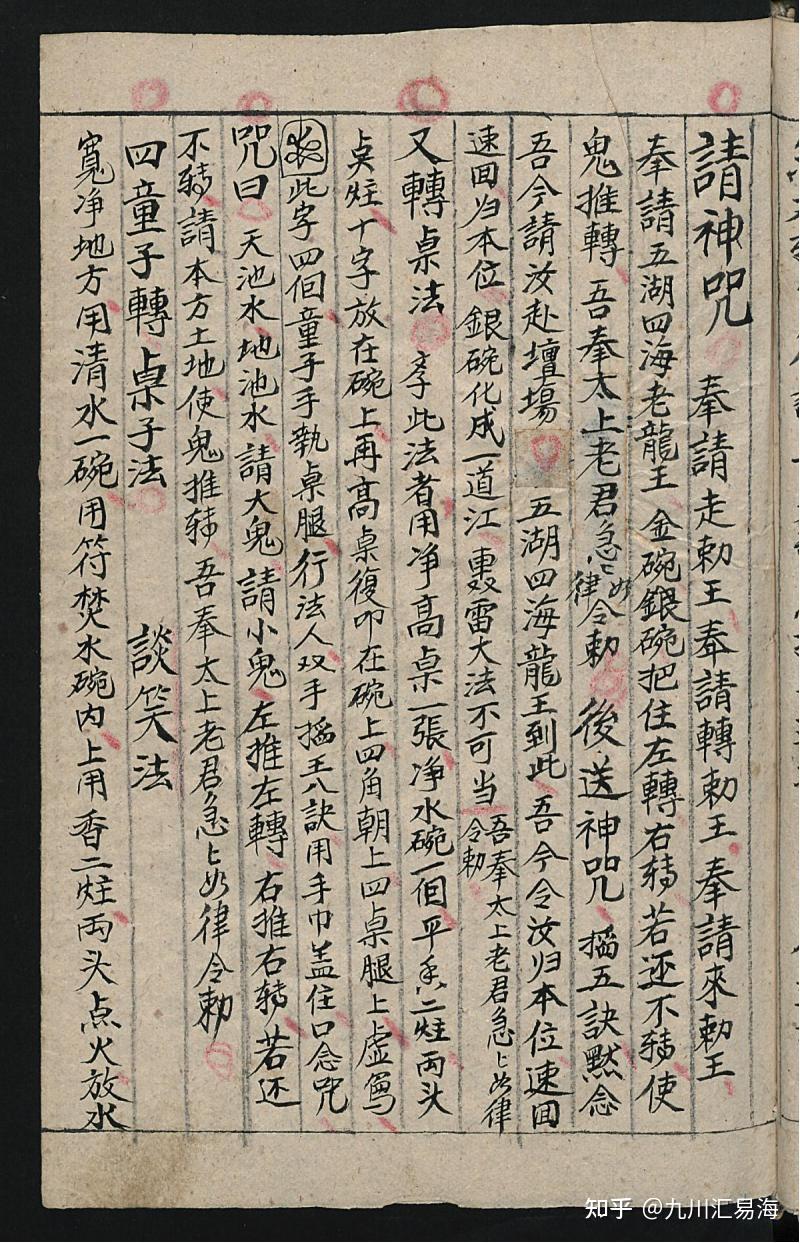 請神咒　奉請走勅王奉請轉勅王奉請來勅王
奉請五湖四海老龍王金碗銀碗把住左轉右转若还不转使
鬼推轉　吾奉太上老君急〻如律令勅　後送神咒　搯五訣黙念
吾今請汝赴壇場　五湖四海龍王到此吾今令汝归本位速回
速回归本位　銀碗化成一道江　轟雷大法不可当　吾奉太上老君急〻如律令勅
又轉桌法　此法者用净髙桌一張净水碗一個平香二炷両头
炷十字放在碗上再髙桌復叩在碗上四角朝上四桌腿上虛寫
此字四個童子手執桌腿行法人双手搯王八訣用手巾盖住口念咒
咒曰　天池水地池水請大鬼請小鬼左推左轉右推右转若还
不转請本方土地使鬼推转吾奉太上老君急〻如律令勅
四童子轉桌子法　談笑法
寬净地方用清水一碗用符焚水碗内上用香二炷両头点火放水
知乎 @九川汇易海